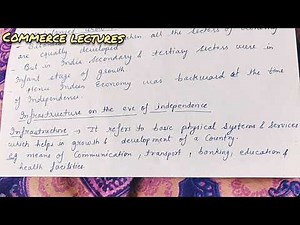 COMMERCE LECTURES
when all the sectors of economy
are equally developed
But in India Secondary & tertiary sectors were in
Infant stage of growth.
Hence Indian Economy was backward at the time
of Independence
Infrastructure on the eve of independence
Infrastructure → It refers to basic physical Systems & Services
which helps in growth & development of a Country.
Eg means of Communication, transport, banking, education &
health facilities